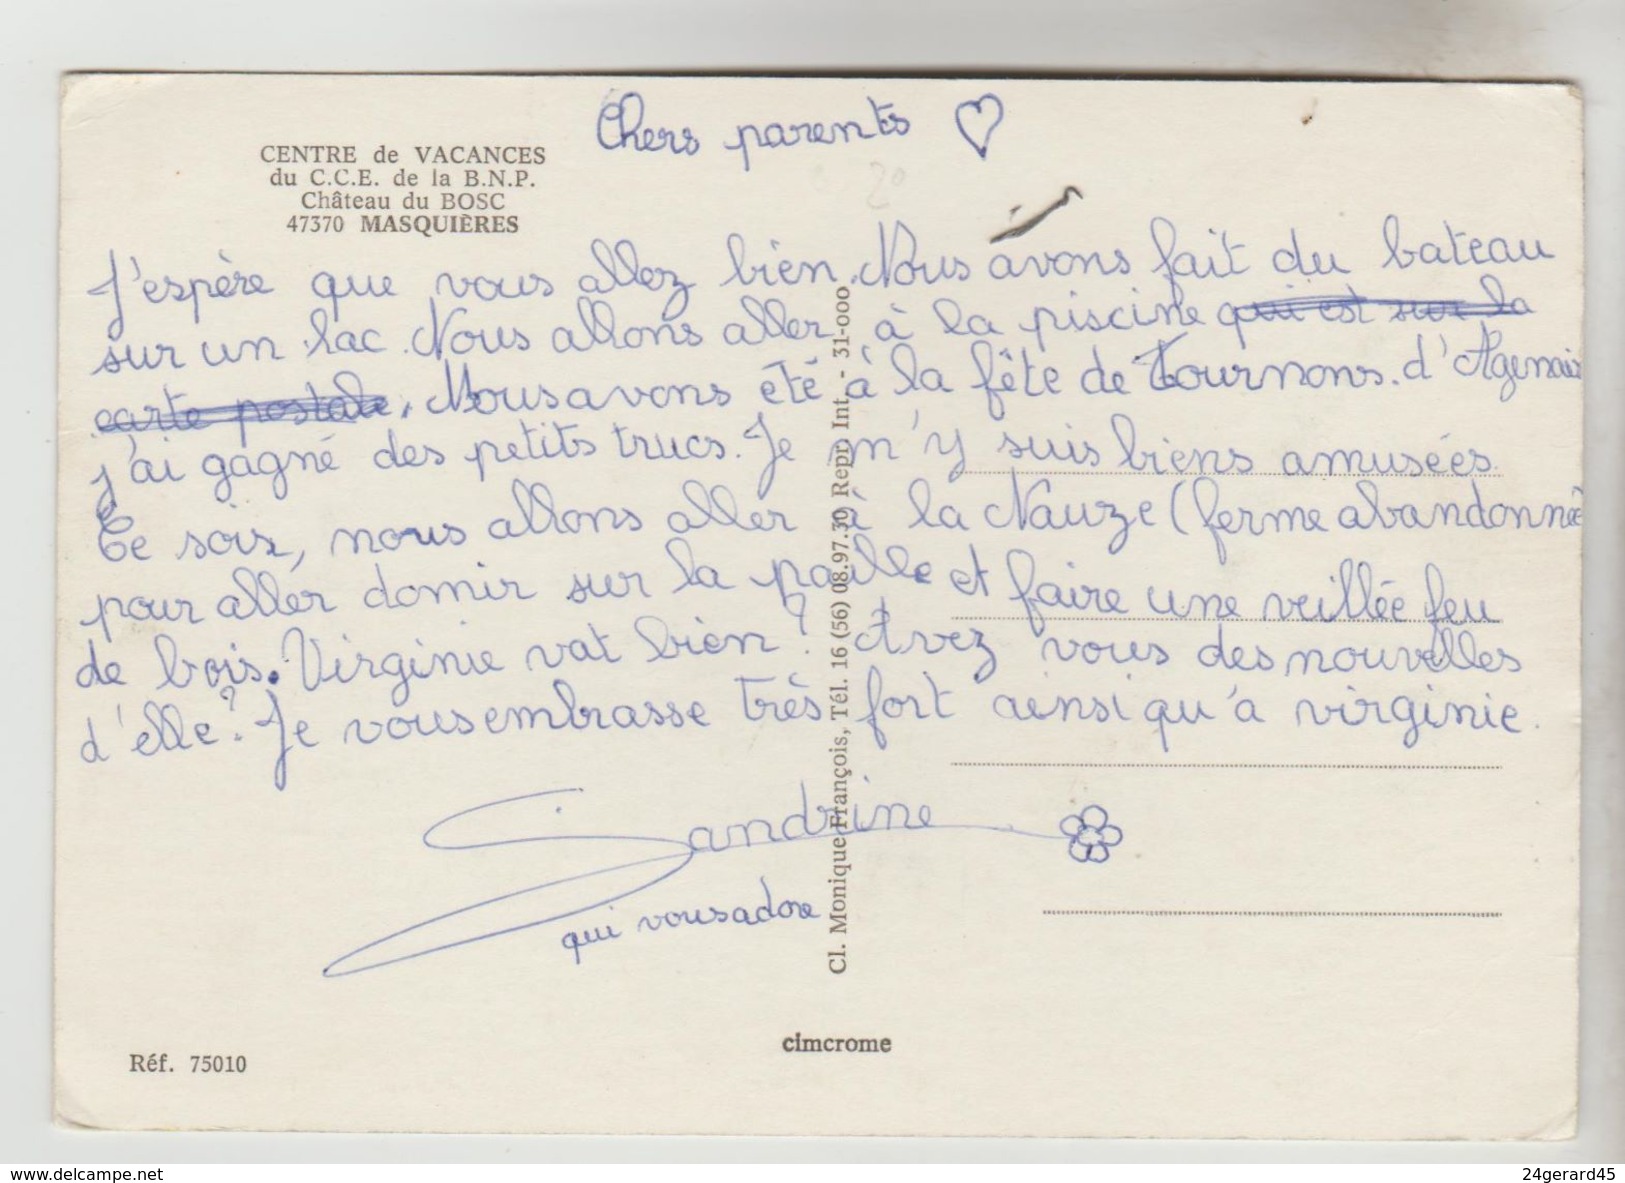 Chers parents
CENTRE de VACANCES
du C.C.E. de la B.N.P.
Château du BOSC
47370 MASQUIÈRES
J'espère que vous allez bien. Nous avons fait du bateau
sur un lac. Nous allons aller à la piscine qui est sur la
carte postale. Nous avons été à la fête de Tournons. d'Agenais
j'ai gagné des petits trucs. Je m'y suis biens amusées.
Ce soir, nous allons aller à la Nauze (ferme abandonnée
pour aller domir sur la paille et faire une veillée feu
de bois. Virginie vat bien? Avez vous des nouvelles
d'elle? Je vous embrasse très fort ainsi qu'à virginie.
Sandrine
qui vous adore
Cl. Monique François, Tél. 16 (56) 08.97.30 Repr. Int. - 31-000
cimcrome
Réf. 75010
www.delcampe.net
24gerard45